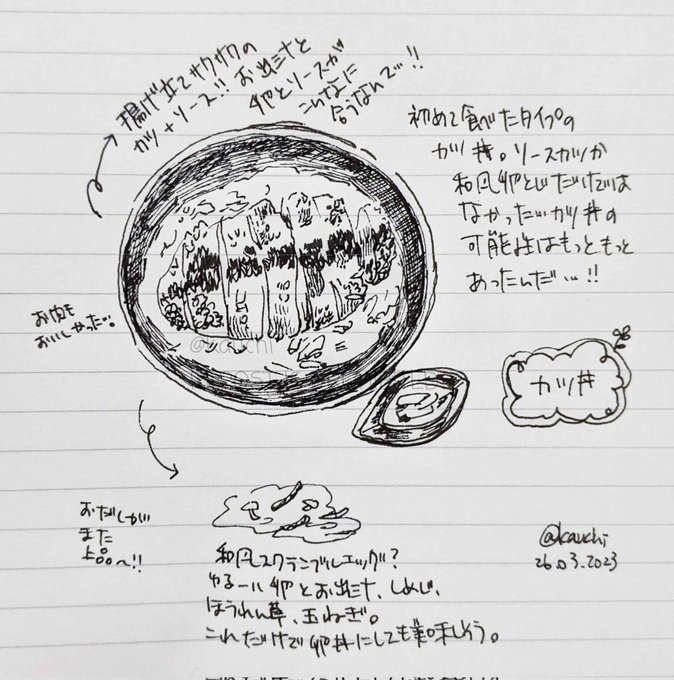 揚げ立てサクサクの
カツ+ソース!! お出汁と
卵とソースが
こんなに
合うなんて…!!
初めて食べたタイプの
カツ丼。ソースカツか
和風卵とじだけでは
なかった…カツ丼の
可能性はもっともっと
あったんだ…!!
お肉も
おいしかった…
@kauchi
カツ丼
おだしが
また
上品〜!!
和風スクランブルエッグ?
ゆるーい卵とお出汁、しめじ、
ほうれん草、玉ねぎ。
これだけで卵丼にしても美味しそう。
@kauchi
26.03.2023